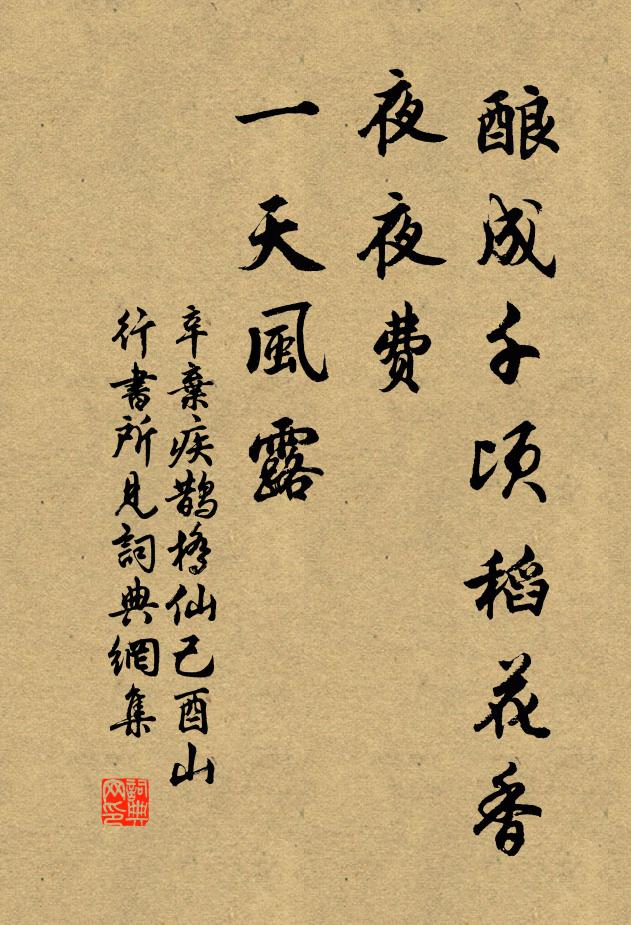 酿成千顷稻花香
夜夜费
一天風露
辛棄疾鹊橋仙己酉山
行書所見詞典網集
詞典
网印